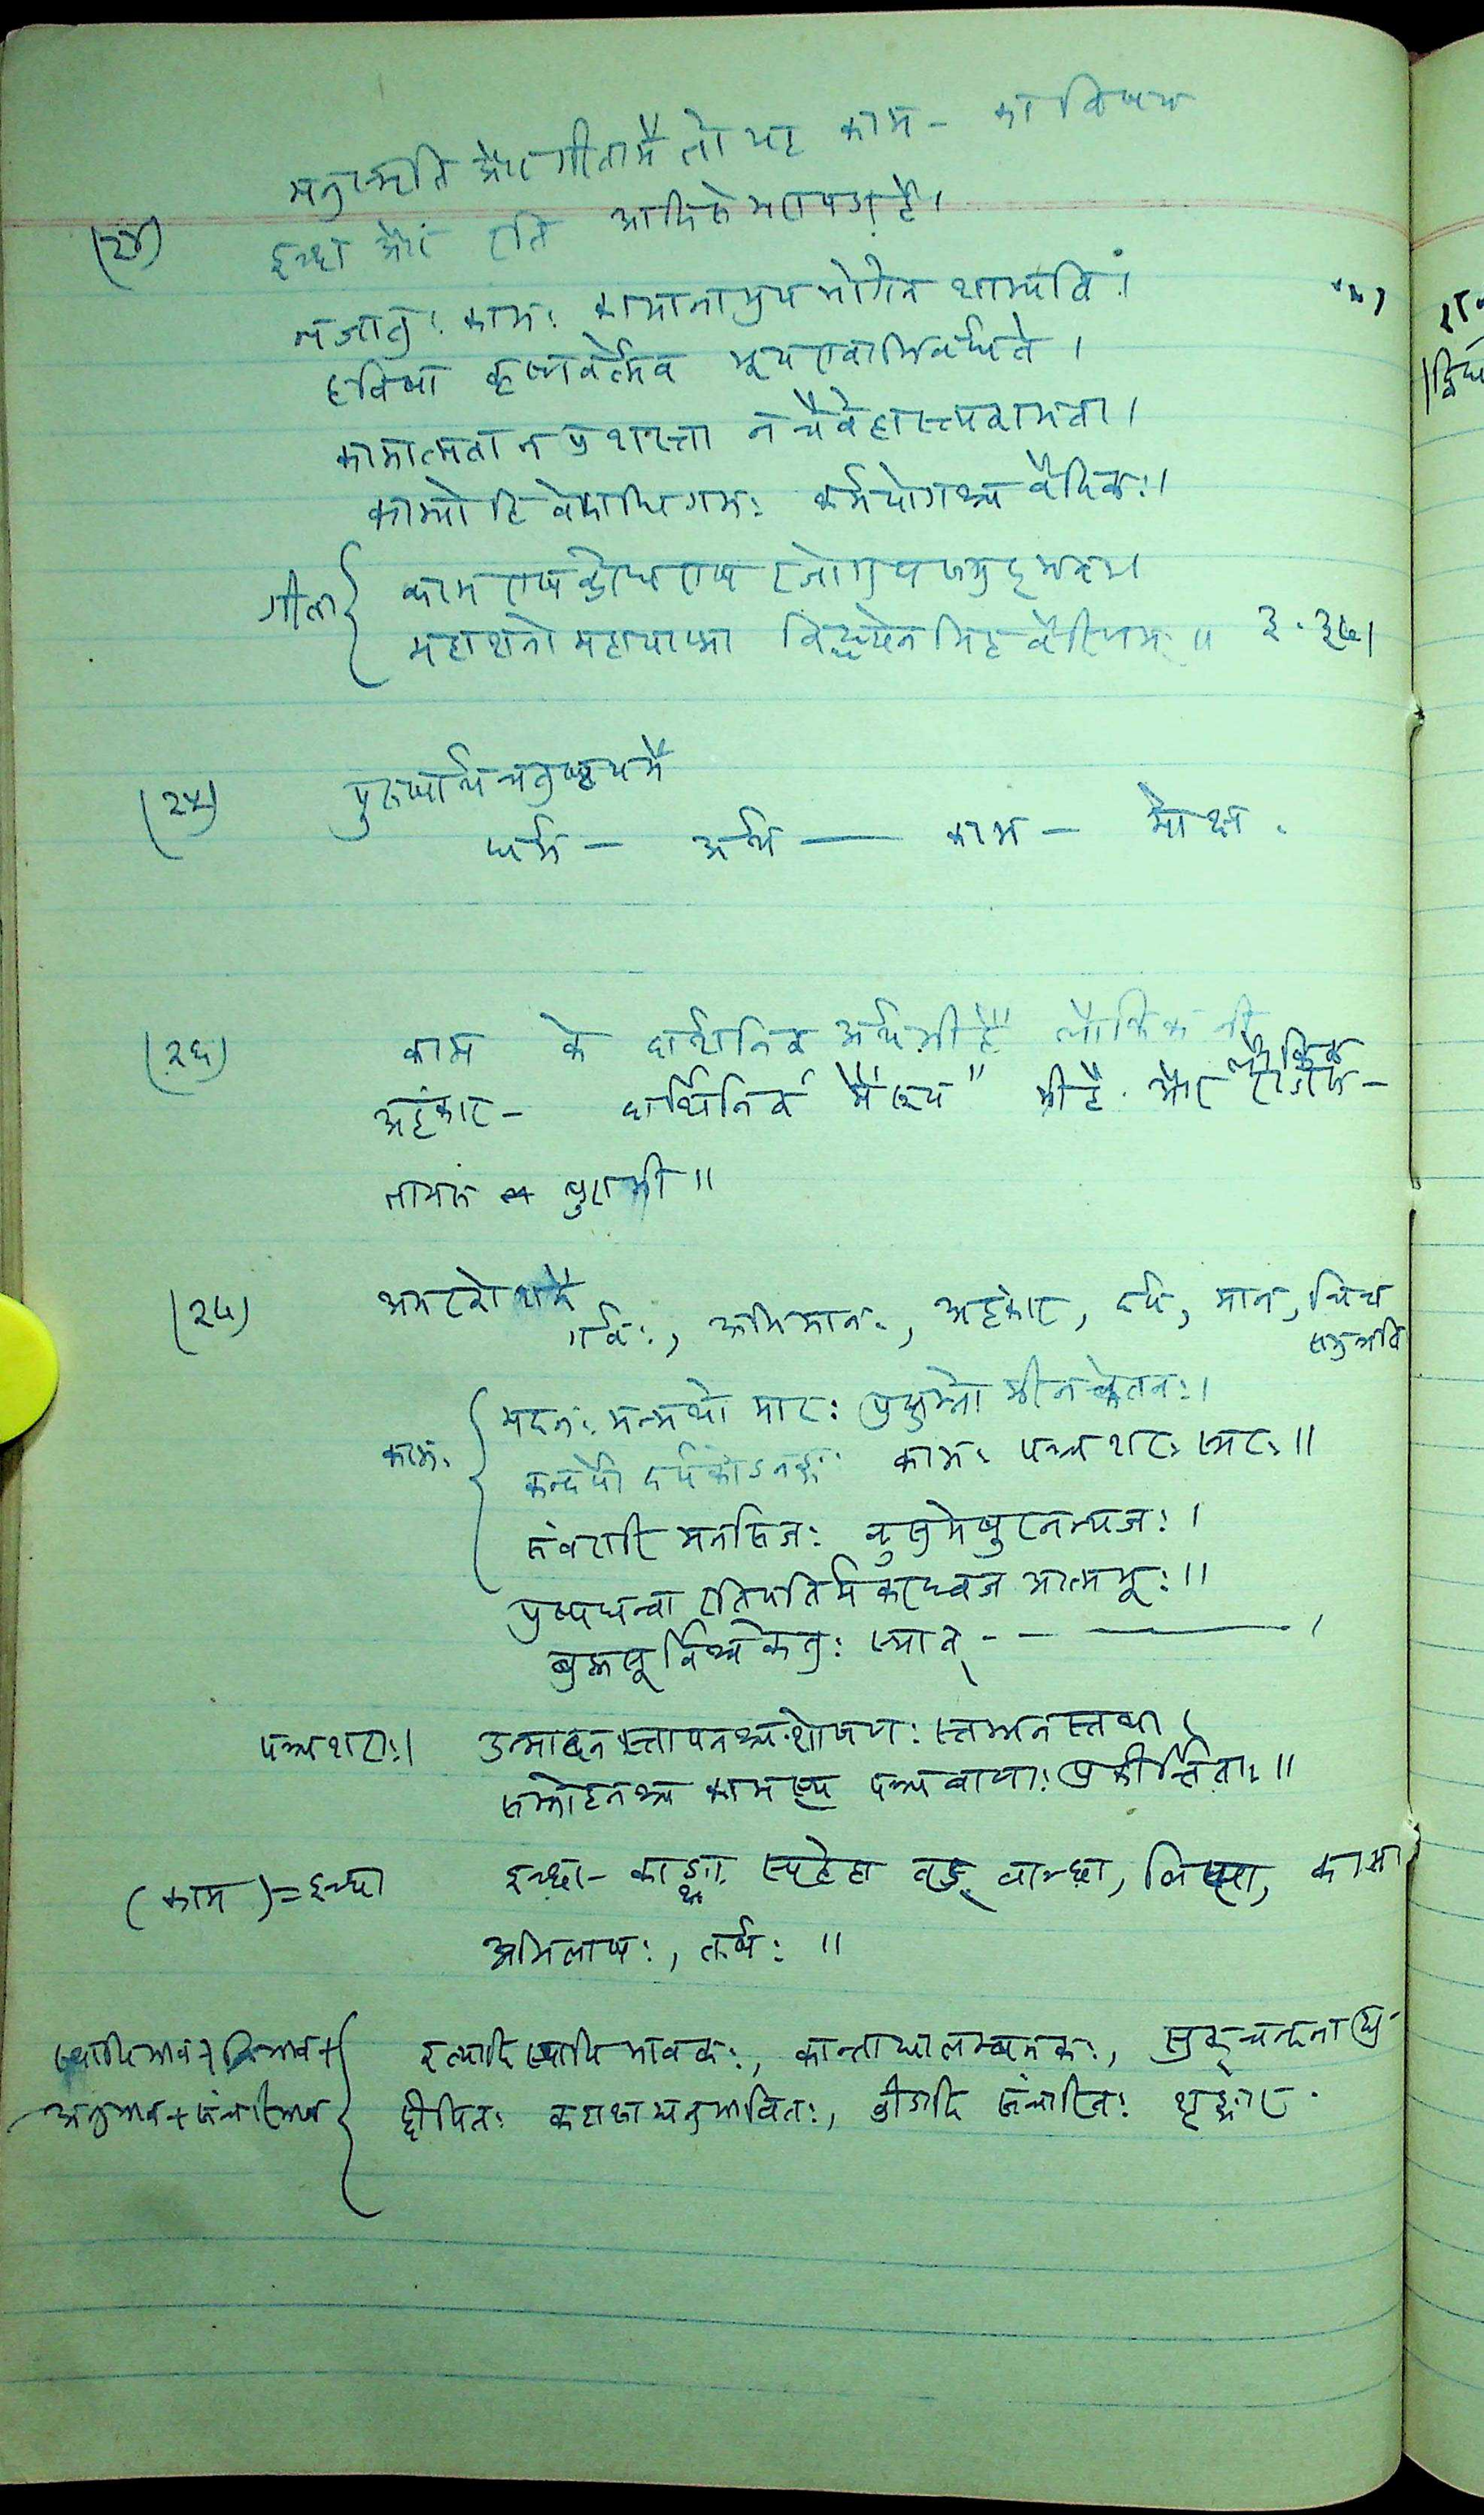 मनुस्मृति और गीतामें तो यह काम - का विषय
(२४) इच्छा और रति आदिसे भरा पड़ा है।
न जातु: काम: कामानामुपभोगेन शाम्यति।
हविषा कृष्णवर्त्मेव भूय एवाभिवर्धते।
कामात्मता न प्रशस्ता न चैवेहास्त्यकामता।
काम्यो हि वेदाधिगम: कर्मयोगश्च वैदिक:।
गीता { काम एष क्रोध एष रजोगुण समुद्भव:।
महाशनो महापाप्मा विद्ध्येनमिह वैरिणम् ॥ ३.३७।
(२५) पुरुषार्थ चतुष्टय में
धर्म - अर्थ — काम - मोक्ष .
(२६) काम के दार्शनिक अर्थ भी हैं लौकिक भी
लौकिक
अहंकार - दार्शनिक में भी है. और राजस -
तामस भी ॥
(२७) अमरकोश में
गर्व:, अभिमान:, अहंकार, दर्प, मान, चित्त
समुन्नति
काम: { मदन: मन्मथो मार: प्रद्युम्नो मीनकेतन:।
कन्दर्पो दर्पकोऽनङ्ग: काम: पञ्चशर: स्मर: ॥
संवरारि मनसिज: कुसुमेषुरनन्यज: ।
पुष्पधन्वा रतिपतिर्मकरध्वज आत्मभू: ॥
ब्रह्मसूर्विश्वकेतु: स्यात् - - — ।
पञ्चशरा:। उन्मादन स्तापनश्च शोषण: स्तम्भनस्तथा।
सम्मोहनश्च कामस्य पञ्चबाणा: प्रकीर्त्तिता: ॥
(काम) = इच्छा इच्छा - काङ्क्षा स्पृहेहा तृड् वाञ्छा, लिप्सा, काम
अभिलाष:, तर्ष: ॥
स्थायिभाव + विभाव + { रत्यादि स्थायि भावक:, कान्ताद्यालम्बनक:, स्रक् चन्दनाद्यु-
अनुभाव + संचारिभाव { द्दीपित: कटाक्षाद्यनुभावित:, व्रीडादि संचारित: शृङ्गार.